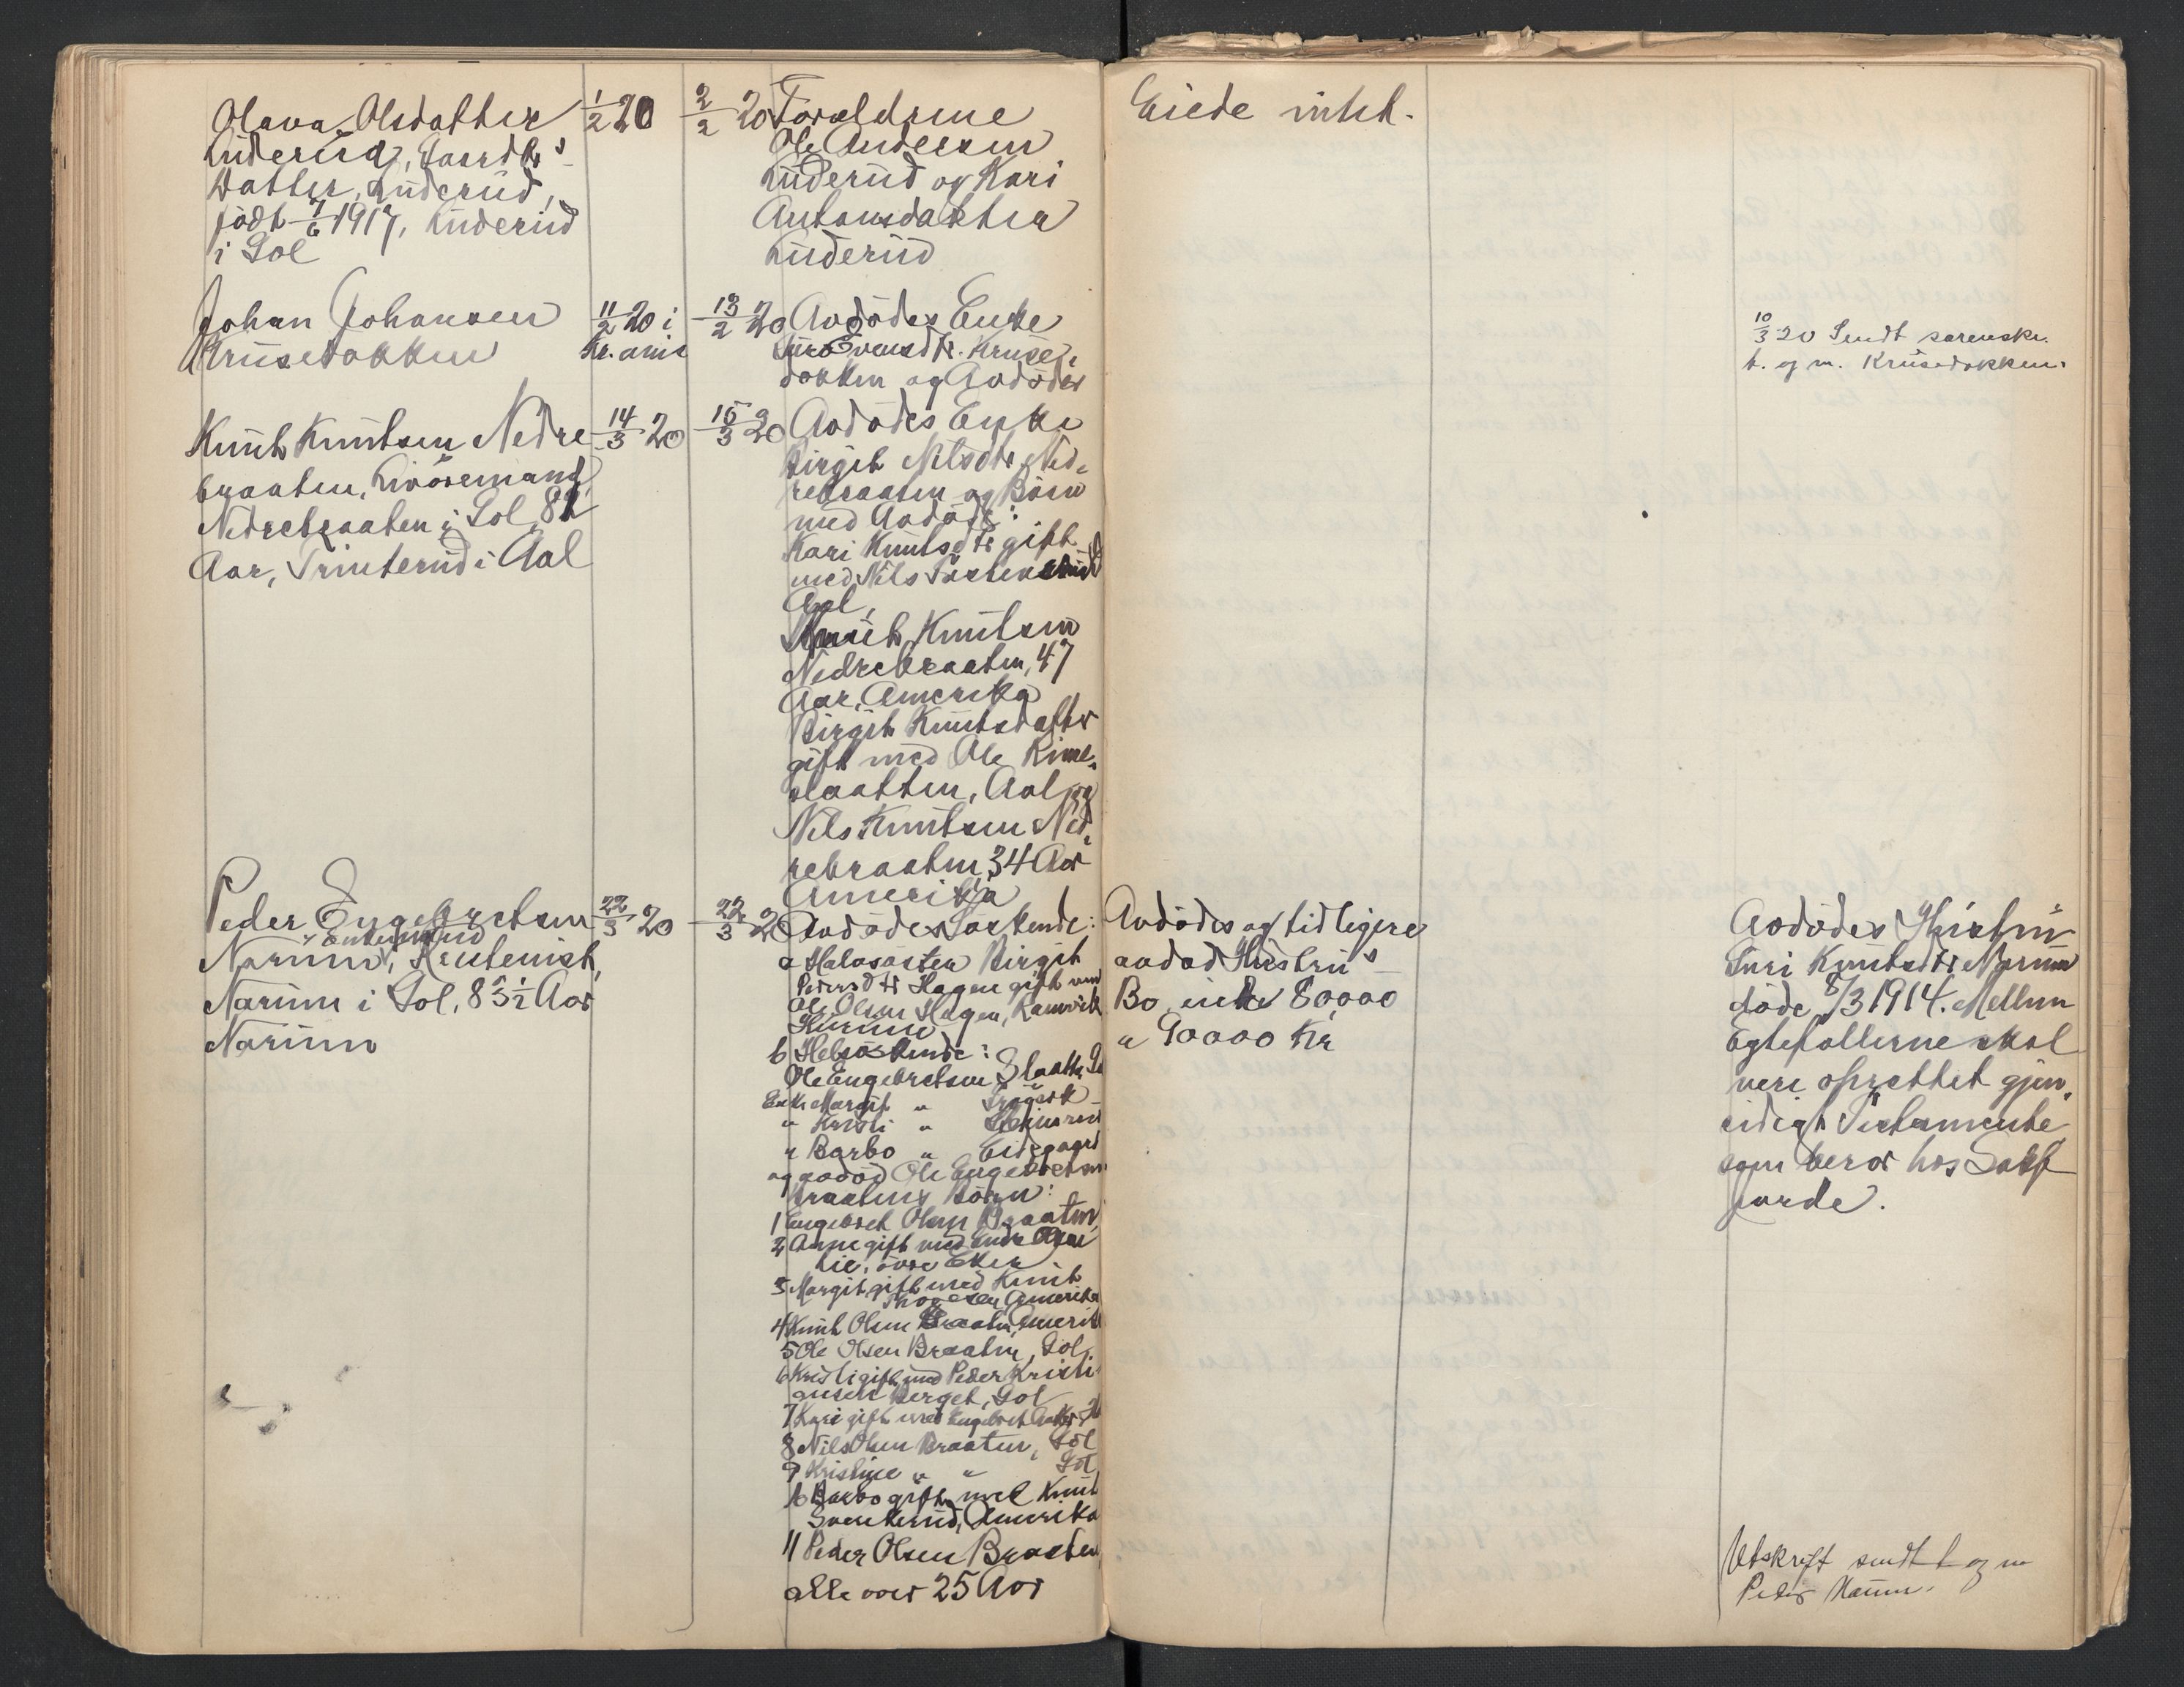 Olava Olsdatter
Luderud, Gaardbr s
Datter, Luderud,
født 7/6 1917, Luderud
i Gol
1/2 20
2/2 20
Forældrene
Ole Andersen
Luderud og Kari
Antonsdatter
Luderud
Eiede intet.
Johan Johansen
Krusedokken
11/2 20 i
Kr.ania
13/2 20
Avdødes Enke
Guro Evensdtr. Kruse-
dokken og Avdødes
10/3 20 Sendt sorenskr.
t. og m. Krusedokken.
Knut Knutsen Nedre-
braaten, Livøremand,
Nedrebraaten i Gol, 82
Aar, Trinterud i Aal
14/3 20
15/3 20
Avdødes Enke
Birgit Nilsdtr Ned-
rebraaten og Børn
med Avdøde:
Kari Knutsdtr gift
med Nils
Aal,
Knut Knutsen
Nedrebraaten, 47
Aar, Amerika
Birgit Knutsdatter
gift med Ole Rime-
slaatten, Aal og
Nils Knutsen Ned-
rebraaten, 34 Aar
Amerika
Peder Engebretsen
Enkemand
Narum, Rentenist,
Narum i Gol, 83 1/2 Aar
Narum
22/3 20
22/3 20
Avdødes Søskende:
a Halvsøsten Birgit
Pedersdtr Hagen gift med
Ole Olsen Hagen,
Hurum
b Helsøskende:
Ole Engebretsen Slaatto
Enke Margit "
" Kristi "
" Barbo " Eidsgaard
og avdød Ole Engebretsen
Braatens Børn:
1 Engebret Olsen Braaten,
2 Anne gift med Endre
Lie, øvre Eker
3 Margit gift med Knut
Amerika
4 Knut Olsen Braaten, Amerik
5 Ole Olsen Braaten, Gol
6 Kristi gift med Peder Kristi-
ansen Berget, Gol
7 Kari gift med Engebret
8 Nils Olsen Braaten, Gol
9 Kristine " " Gol
10 Barbo gift med Knut
Svenkerud, Amerika
11 Peder Olsen Braaten
alle over 25 Aar
Avdødes og tidligere
avdød Hustru s
Bo, ca 80,000
a 90000 Kr
Avdødes Hustru
Guri Knutsdtr Narum
døde 8/3 1914. Mellem
Egtefollerne skal
være oprettet gjen-
sidigt Testamente
som beror hos Sakf
Jorde.
Utskrift sendt t og m
Peder Narum.